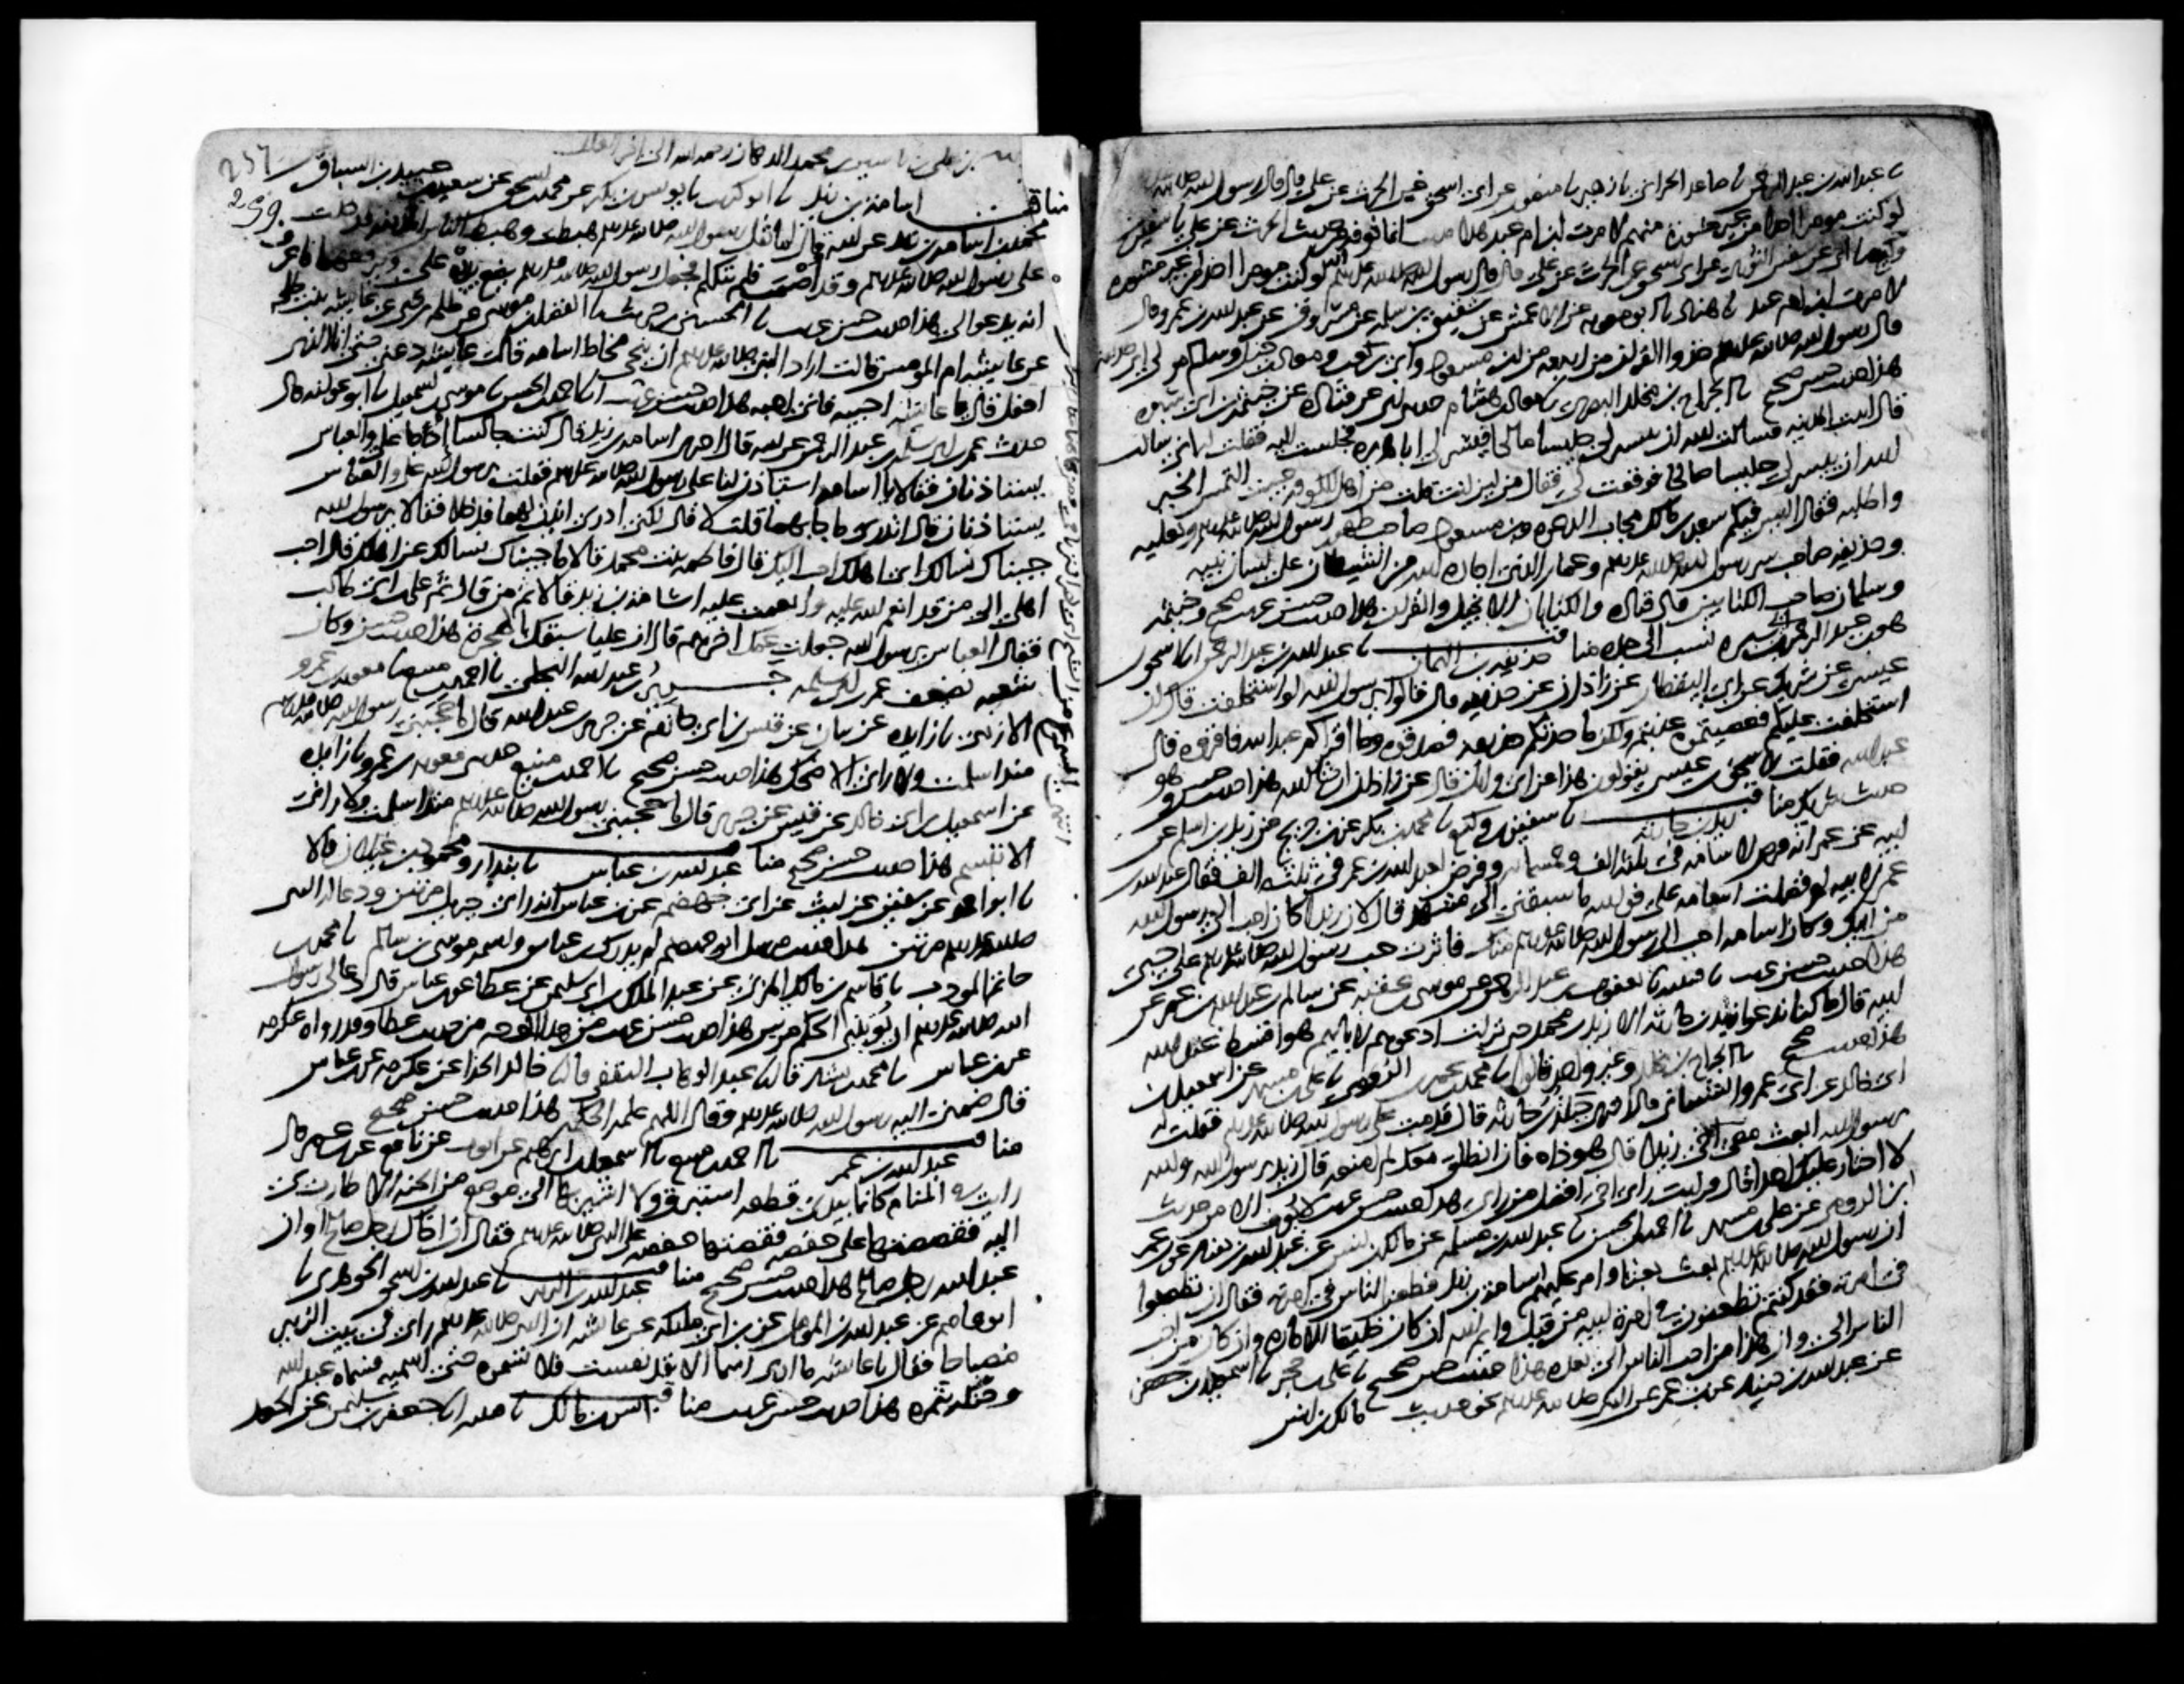 نا عبد الله بن عبد الرحمن نا صاعد الحراني نا زهير نا منصور عن ابي اسحق عن الحرث عن علي قال قال رسول الله صلى الله
لو كنت مومرا احدا من غير مشورة منهم لامرت ابن ام عبد هذا حديث انما نعرفه من حديث الحرث عن علي نا سفين
وكيع نا ابي عن سفين الثوري عن ابي اسحق عن الحرث عن علي قال قال رسول الله صلى الله عليه وسلم لو كنت مومرا احدا من غير مشورة
لامرت ابن ام عبد نا هناد نا ابو معوية عن الاعمش عن شقيق بن سلمة عن مسروق عن عبد الله بن عمرو قال
قال رسول الله صلى الله عليه وسلم خذوا القرآن من اربعة من ابن مسعود وابي بن كعب ومعاذ بن جبل وسالم مولى ابي حذيفة
هذا حديث حسن صحيح نا الجراح بن مخلد البصري نا معاذ بن هشام حدثني ابي عن قتادة عن خيثمة بن ابي سبرة
قال اتيت المدينة فسالت الله ان ييسر لي جليسا صالحا فيسر لي ابا هريرة فجلست اليه فقلت له اني سالت
الله ان ييسر لي جليسا صالحا فوفقت لي فقال من اين انت قلت من اهل الكوفة جيت التمس الخير
واطلبه فقال اليس فيكم سعد بن مالك مجاب الدعوة وابن مسعود صاحب طهور رسول الله صلى الله عليه وسلم ونعليه
وحذيفة صاحب سر رسول الله صلى الله عليه وسلم وعمار الذي اجاره الله من الشيطان على لسان نبيه
وسلمان صاحب الكتابين قال قتادة والكتابان الانجيل والقرآن هذا حديث حسن غريب صحيح وخيثمة
هو بن عبد الرحمن بن سبرة نسب الى جده مناقب حذيفة بن اليمان نا عبد الله بن عبد الرحمن انا اسحق
عيسى عن شريك عن ابي اليقظان عن زاذان عن حذيفة قال قالوا يا رسول الله لو استخلفت قال ان
استخلفت عليكم فعصيتموه عذبتم ولكن ما حدثكم حذيفة فصدقوه وما اقراكم عبد الله فاقروه قال
عبد الله فقلت لاسحق بن عيسى يقولون هذا عن ابي وائل قال عن زاذان ان شا الله هذا حديث حسن وهو
حديث شريك مناقب زيد بن حارثة نا سفين بن وكيع نا محمد بن بكر عن بن جريج عن زيد بن اسلم عن
ابيه عن عمر انه فرض لاسامة في ثلثة الف وخمسمائة وفرض لعبد الله بن عمر في ثلثة الف فقال عبد الله بن
عمر لابيه لم فضلت اسامة علي فوالله ما سبقني الى مشهد قال لان زيدا كان احب الى رسول الله
من ابيك وكان اسامة احب الى رسول الله صلى الله عليه وسلم منك فاثرت حب رسول الله صلى الله عليه وسلم على حبي
هذا حديث حسن غريب نا قتيبة نا يعقوب بن عبد الرحمن عن موسى بن عقبة عن سالم بن عبد الله بن عمر عن
ابيه قال ما كنا ندعو زيد بن حارثة الا زيد بن محمد حتى نزلت ادعوهم لابايهم هو اقسط عند الله
هذا حديث صحيح نا الجراح بن مخلد وغير واحد قالوا نا محمد بن عمر بن الرومي نا علي بن مسهر عن اسمعيل بن
ابي خالد عن ابي عمرو الشيباني قال اخبرني جبلة بن حارثة قال قدمت على رسول الله صلى الله عليه وسلم فقلت له
يا رسول الله ابعث معي اخي زيدا قال هو ذاه فان انطلق معك لم امنعه قال زيد يا رسول الله والله
لا اختار عليك احدا قال فرايت راي اخي افضل من رايي هذا حديث حسن غريب لا نعرفه الا من حديث
ابن الرومي عن علي بن مسهر نا احمد بن الحسن نا عبد الله بن مسلمة عن مالك بن انس عن عبد الله بن دينار عن بن عمر
ان رسول الله صلى الله عليه وسلم بعث بعثا وامر عليهم اسامة بن زيد فطعن الناس في امرته فقال ان تطعنوا
في امرته فقد كنتم تطعنون في امرة ابيه من قبل وايم الله ان كان لخليقا للامارة وان كان من احب
الناس الي وان هذا من احب الناس الي بعده هذا حديث حسن صحيح نا علي بن حجر نا اسمعيل بن جعفر
عن عبد الله بن دينار عن بن عمر عن النبي صلى الله عليه وسلم نحو حديث مالك بن انس
257
259
مناقب اسامة بن زيد نا ابو كريب نا يونس بن بكير عن محمد بن اسحق عن سعيد بن عبيد بن السباق
محمد بن اسامة بن زيد عن ابيه قال لما ثقل رسول الله صلى الله عليه وسلم هبطت وهبط الناس المدينة فدخلت
على رسول الله صلى الله عليه وسلم وقد اصمت فلم يتكلم فجعل رسول الله صلى الله عليه وسلم يضع يديه علي ويرفعهما فاعرف
انه يدعو لي هذا حديث حسن غريب نا الحسين بن حريث نا الفضل بن موسى عن طلحة بن يحيى عن عايشة بنت طلحة
عن عايشة ام المومنين قالت اراد النبي صلى الله عليه وسلم ان ينحي مخاط اسامة قالت عايشة دعني حتى انا الذي
افعل قال يا عايشة احبيه فاني احبه هذا حديث حسن غريب نا احمد بن الحسن نا موسى بن اسمعيل نا ابو عوانة قال
حدث عمر بن ابي سلمة بن عبد الرحمن عن ابيه قال اخبرني اسامة بن زيد قال كنت جالسا اذ جا علي والعباس
يستاذنان فقالا يا اسامة استاذن لنا على رسول الله صلى الله عليه وسلم فقلت يا رسول الله علي والعباس
يستاذنان قال اتدري ما جا بهما قلت لا قال لكني ادري ائذن لهما فدخلا فقالا يا رسول الله
جيناك نسالك اي اهلك احب اليك قال فاطمة بنت محمد قالا ما جيناك نسالك عن اهلك قال احب
اهلي الي من قد انعم الله عليه وانعمت عليه اسامة بن زيد قالا ثم من قال ثم علي بن ابي طالب
فقال العباس يا رسول الله جعلت عمك اخرهم قال ان عليا سبقك بالهجرة هذا حديث حسن وكان
شعبة يضعف عمر بن ابي سلمة جرير بن عبد الله البجلي نا احمد بن منيع نا معوية بن عمرو
الازدي نا زايدة عن بيان عن قيس بن ابي حازم عن جرير بن عبد الله قال ما حجبني رسول الله صلى الله عليه وسلم
منذ اسلمت ولا راني الا ضحك هذا حديث حسن صحيح نا احمد بن منيع حدثني معوية بن عمرو نا زايدة
عن اسمعيل بن ابي خالد عن قيس عن جرير قال ما حجبني رسول الله صلى الله عليه وسلم منذ اسلمت ولا راني
الا تبسم هذا حديث حسن صحيح مناقب عبد الله بن عباس نا بندار ومحمود بن غيلان قالا
نا ابو احمد عن سفين عن ليث عن ابي جهضم عن بن عباس انه راى جبريل مرتين ودعا له النبي
صلى الله عليه وسلم مرتين هذا حديث مرسل ابو جهضم لم يدرك بن عباس واسمه موسى بن سالم نا محمد بن
حاتم المودب نا قاسم بن مالك المزني عن عبد الملك بن ابي سليمن عن عطا عن بن عباس قال دعا لي رسول
الله صلى الله عليه وسلم ان يوتيني الحكم مرتين هذا حديث حسن غريب من هذا الوجه من حديث عطا وقد رواه عكرمة
عن بن عباس نا محمد بن بشار قال نا عبد الوهاب الثقفي قال نا خالد الحذا عن عكرمة عن بن عباس
قال ضمني اليه رسول الله صلى الله عليه وسلم وقال اللهم علمه الحكمة هذا حديث حسن صحيح
مناقب عبد الله بن عمر نا احمد بن منيع نا اسمعيل بن ابرهيم عن ايوب عن نافع عن بن عمر قال
رايت في المنام كانما بيدي قطعة استبرق ولا اشير بها الى موضع من الجنة الا طارت بي
اليه فقصصتها على حفصة فقصتها حفصة على النبي صلى الله عليه وسلم فقال ان اخاك رجل صالح او ان
عبد الله رجل صالح هذا حديث حسن صحيح مناقب عبد الله بن الزبير نا عبد الله بن اسحق الجوهري نا
ابو عاصم عن عبد الله بن المومل عن بن ابي مليكة عن عايشة ان النبي صلى الله عليه وسلم راى في بيت الزبير
مصباحا فقال يا عايشة ما ارى اسما الا قد نفست فلا تسموه حتى اسميه فسماه عبد الله
وحنكه بتمرة هذا حديث حسن غريب مناقب انس بن مالك نا قتيبة نا جعفر بن سليمن عن الجعد